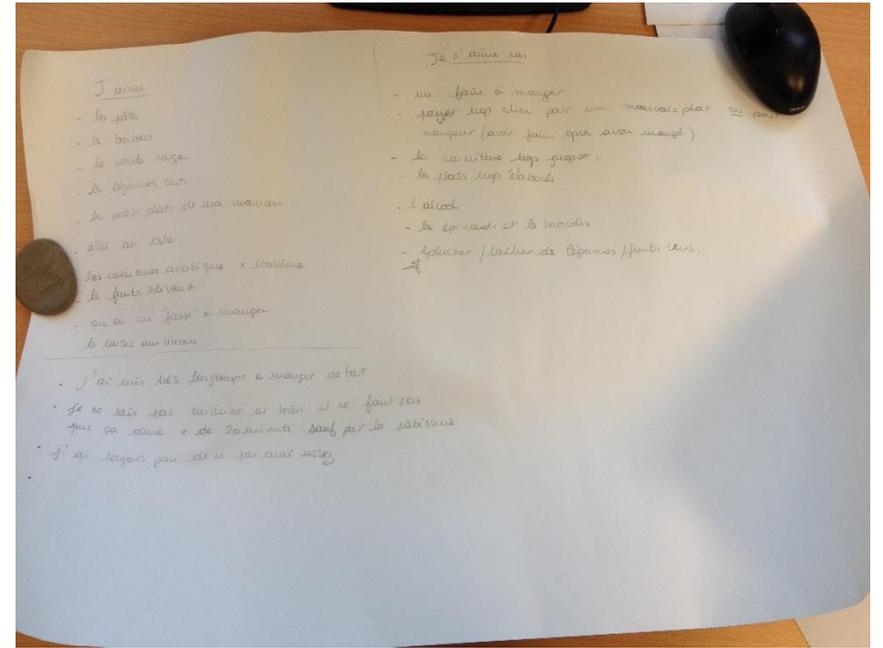 J'aime
- les pâtes
- les bonbons
- la viande rouge
- les légumes cuits
- les petits plats de ma maman
- aller au resto
- les cuisines asiatique + italienne
- les fruits estivaux
- qu'on me fasse à manger
les tartes aux citrons
Je n'aime pas
- me faire à manger
- payer trop cher pour un mauvais plat ou pour
manquer (avoir faim après avoir mangé)
- la nourriture trop grasse.
- les plats trop élaborés
- l'alcool
- les épinards et les brocolis
- éplucher / toucher des légumes / fruits crus.
• j'ai mis très longtemps à manger de tout
• je ne sais pas cuisiner ou bien il ne faut pas
que ça dure + de 20 minutes sauf pour la pâtisserie
• j'ai toujours peur de ne pas avoir assez